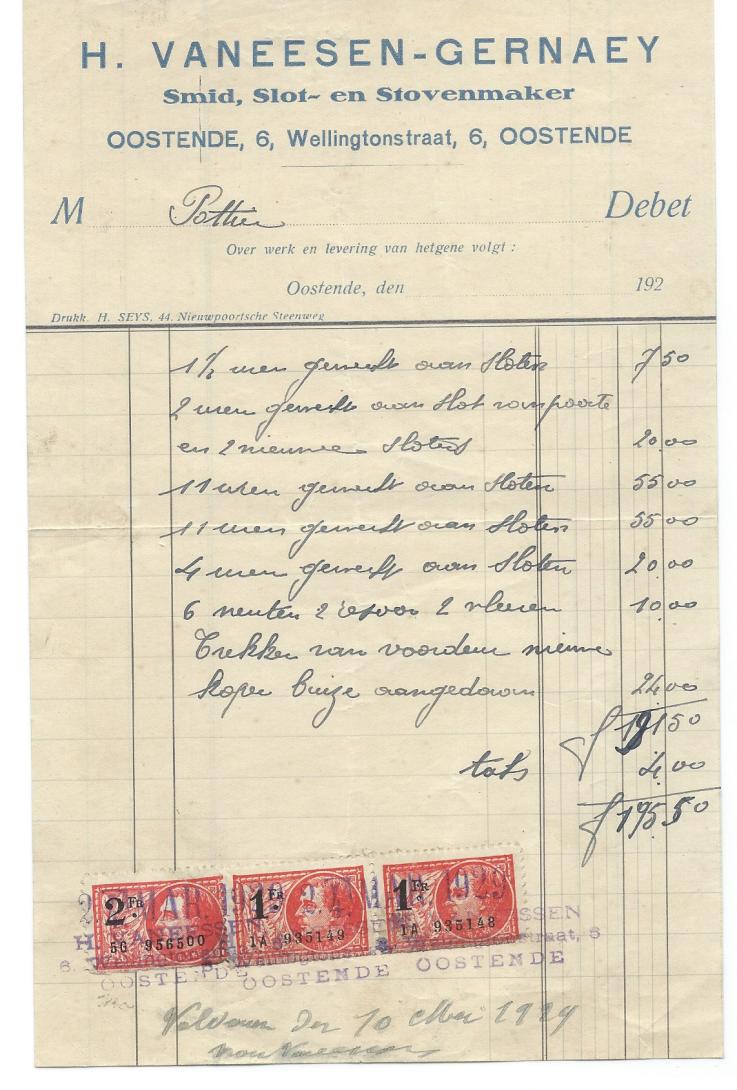 H. VANEESEN-GERNAEY
Smid, Slot- en Stovenmaker
OOSTENDE, 6, Wellingtonstraat, 6, OOSTENDE
M Pottier Debet
Over werk en levering van hetgene volgt :
Oostende, den 192
Drukk. H. SEYS, 44, Nieuwpoortsche Steenweg
1½ uren gewerkt aan Sloten 7 50
2 uren gewerkt aan Slot van poorte
en 2 nieuwe Sloten 20 00
11 uren gewerkt aan Sloten 55 00
11 uren gewerkt aan Sloten 55 00
4 uren gewerkt aan Sloten 20 00
6 2 2 10 00
Trekker van voordeur nieuwe
koper buize aangedaan 24 00
f 191 50
taks 4 00
f 195 50
2 FR 1 FR 1 FR
MAR 1929 MAR 1929
5G 956500 1A 935149 1A 935148
OOSTENDE OOSTENDE OOSTENDE
Voldaan den 10 Mei 1929